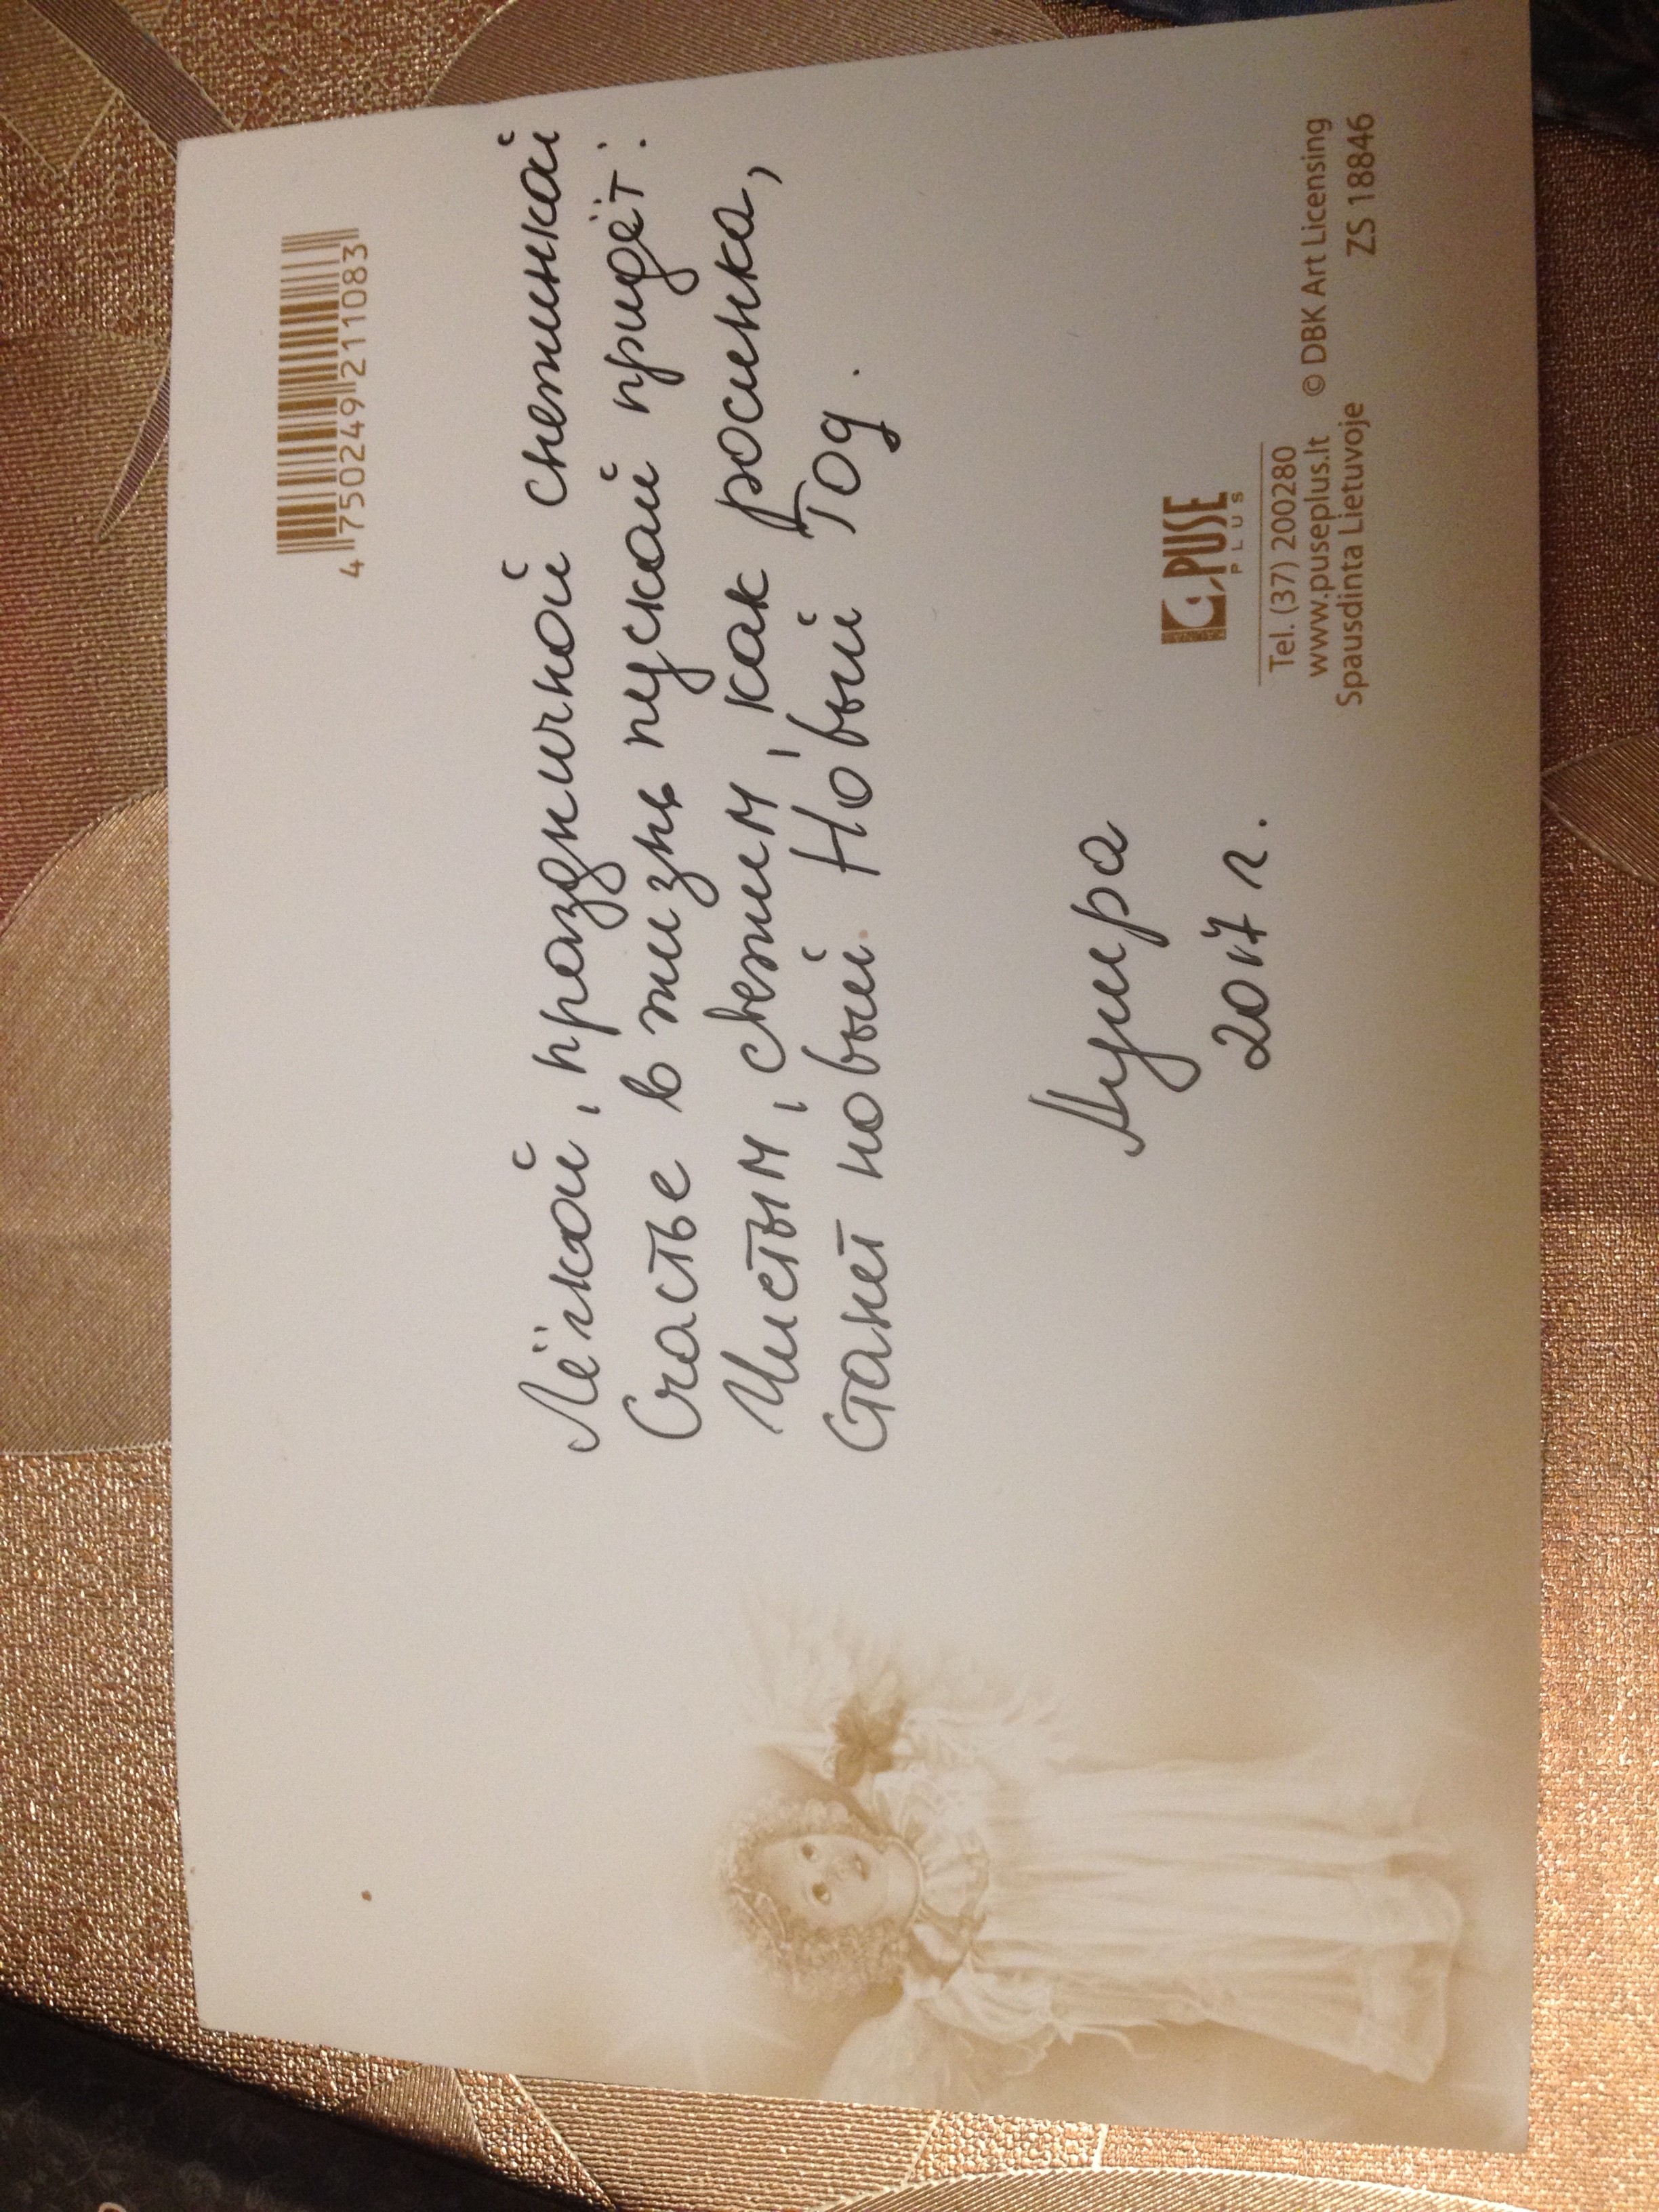 4 750249 211083
Лёгкой, праздничной снежинкой
Счастье в жизнь пускай придёт.
Чистым, свежим, как росинка,
Станет новый Новый Год.
Мира
2017 г.
PUSE
PLUS
Tel. (37) 200280
www.puseplus.lt © DBK Art Licensing
Spausdinta Lietuvoje ZS 18846